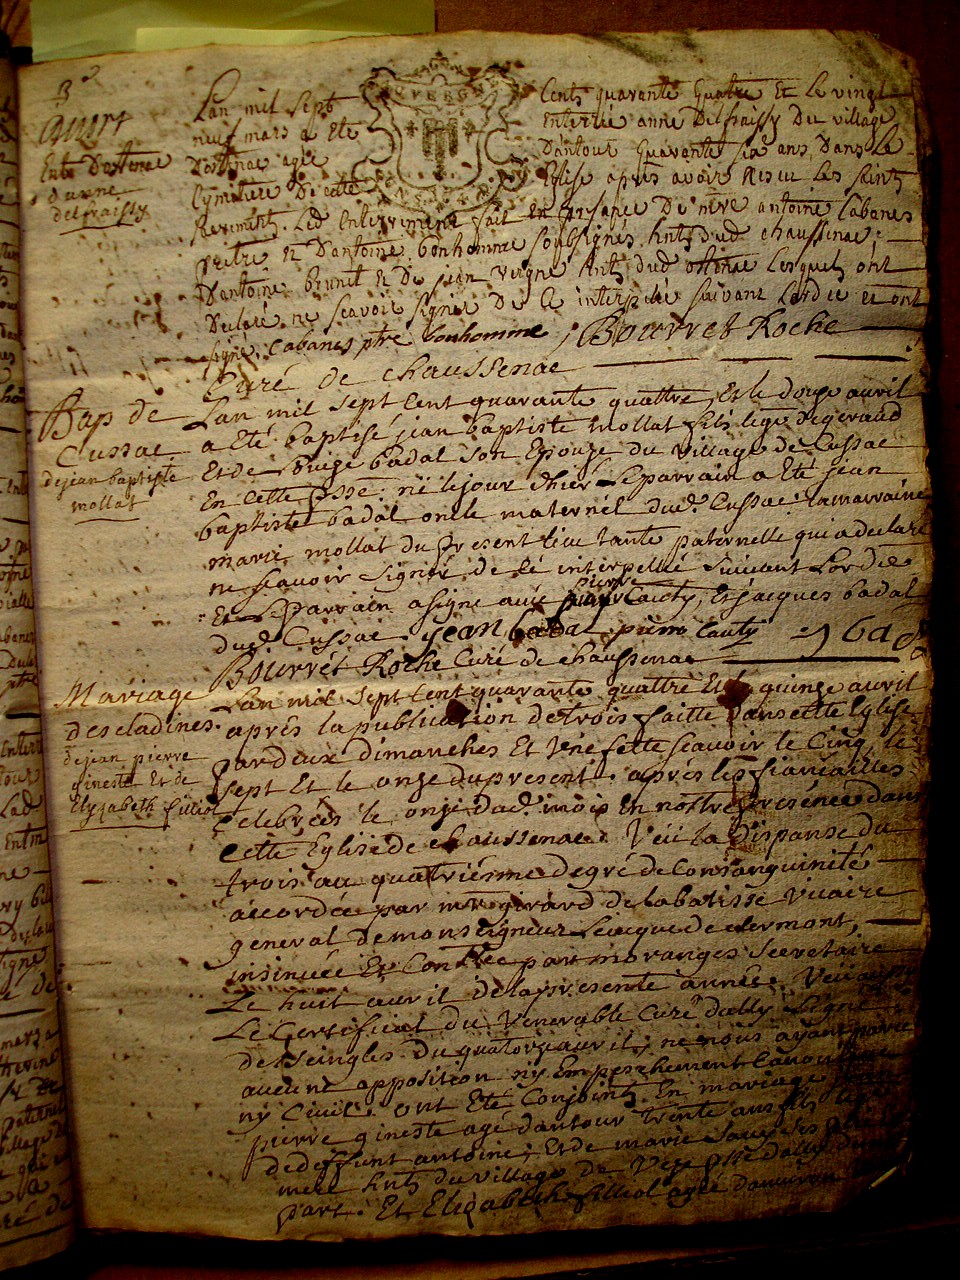 3
Lan mil sept cents quarante quatre Et Le vingt
neuf mars a Eté Enterrée anne Delfraissy Du village
D'ostenac agée Dantour quarante six ans, Dans Le
Cymitiere De cette Eglise apres avoir Resu Les sints
Ent. Dostenac
d'anne
delfraissy
Led Enterrement fait En presance De mre antoine Cabanes
pretre Et D'antoine bonhomme soubsignés hnts dud chaussenac,
D'antoine brunit Et De jean vergne hnts dud ostenac Lesquels ont
Declaré ne scavoir signer De Ce interpelés suivant Lordre et ont
signé. Cabanes ptre bonhomme, Bourret Roche
Curé de chaussenac
Bap de
Cussac
de jean baptiste
mollat
Lan mil sept cent quarante quattre, Et le douze avril
a Eté baptisé jean baptiste mollat fils legme de geraud
Et de badal son Epouze du village de Cussac
En cette psse. né le jour d'hier Le parrain a Eté jean
baptiste badal oncle maternel dud. Cussac. la marraine
marie mollat du present lieu tante paternelle qui a declaré
ne scavoir signer de ce interpellée suivant Lordre
Et Le parrain a signé avec pierre Cauty, Et jacques badal
dud Cussac. jean badal pierre Cauty
Bourret Roche Curé de chaussenac
Mariage
descladines.
de jean pierre
gineste Et de
Elyzabeth filliol
Lan mil sept cent quarante quattre Et le quinze avril
après la publication de trois faitte dans cette Eglise
par deux dimanches Et Une fette scavoir le Cinq, le
sept Et le onze du present. aprés les fiancailles
Celebrées le onze dud. mois En nostre presence dans
cette Eglise de chaussenac. Veü la Dispanse du
trois au quatriésme degré de Consanguinité
accordée par mre girard de labatisse Vicaire
general de monseigneur Levecque de clermont,
insinuée Et Contlée par moranges secretaire
Le huit avril de la presente année. Veu aussy
Le Certificat du Venerable Curé dally signé
desseingles du quatorze avril, ne nous ayant paru
aucune apposition ny Empeschement Canonique
ny Civil. ont Eté Conjoints En mariage jean
pierre gineste agé dantour trente ans fils
de deffunt antoine, Et de marie
mere hnts du village de psse dally dune
part. Et Elizabeth filliol agée danviron